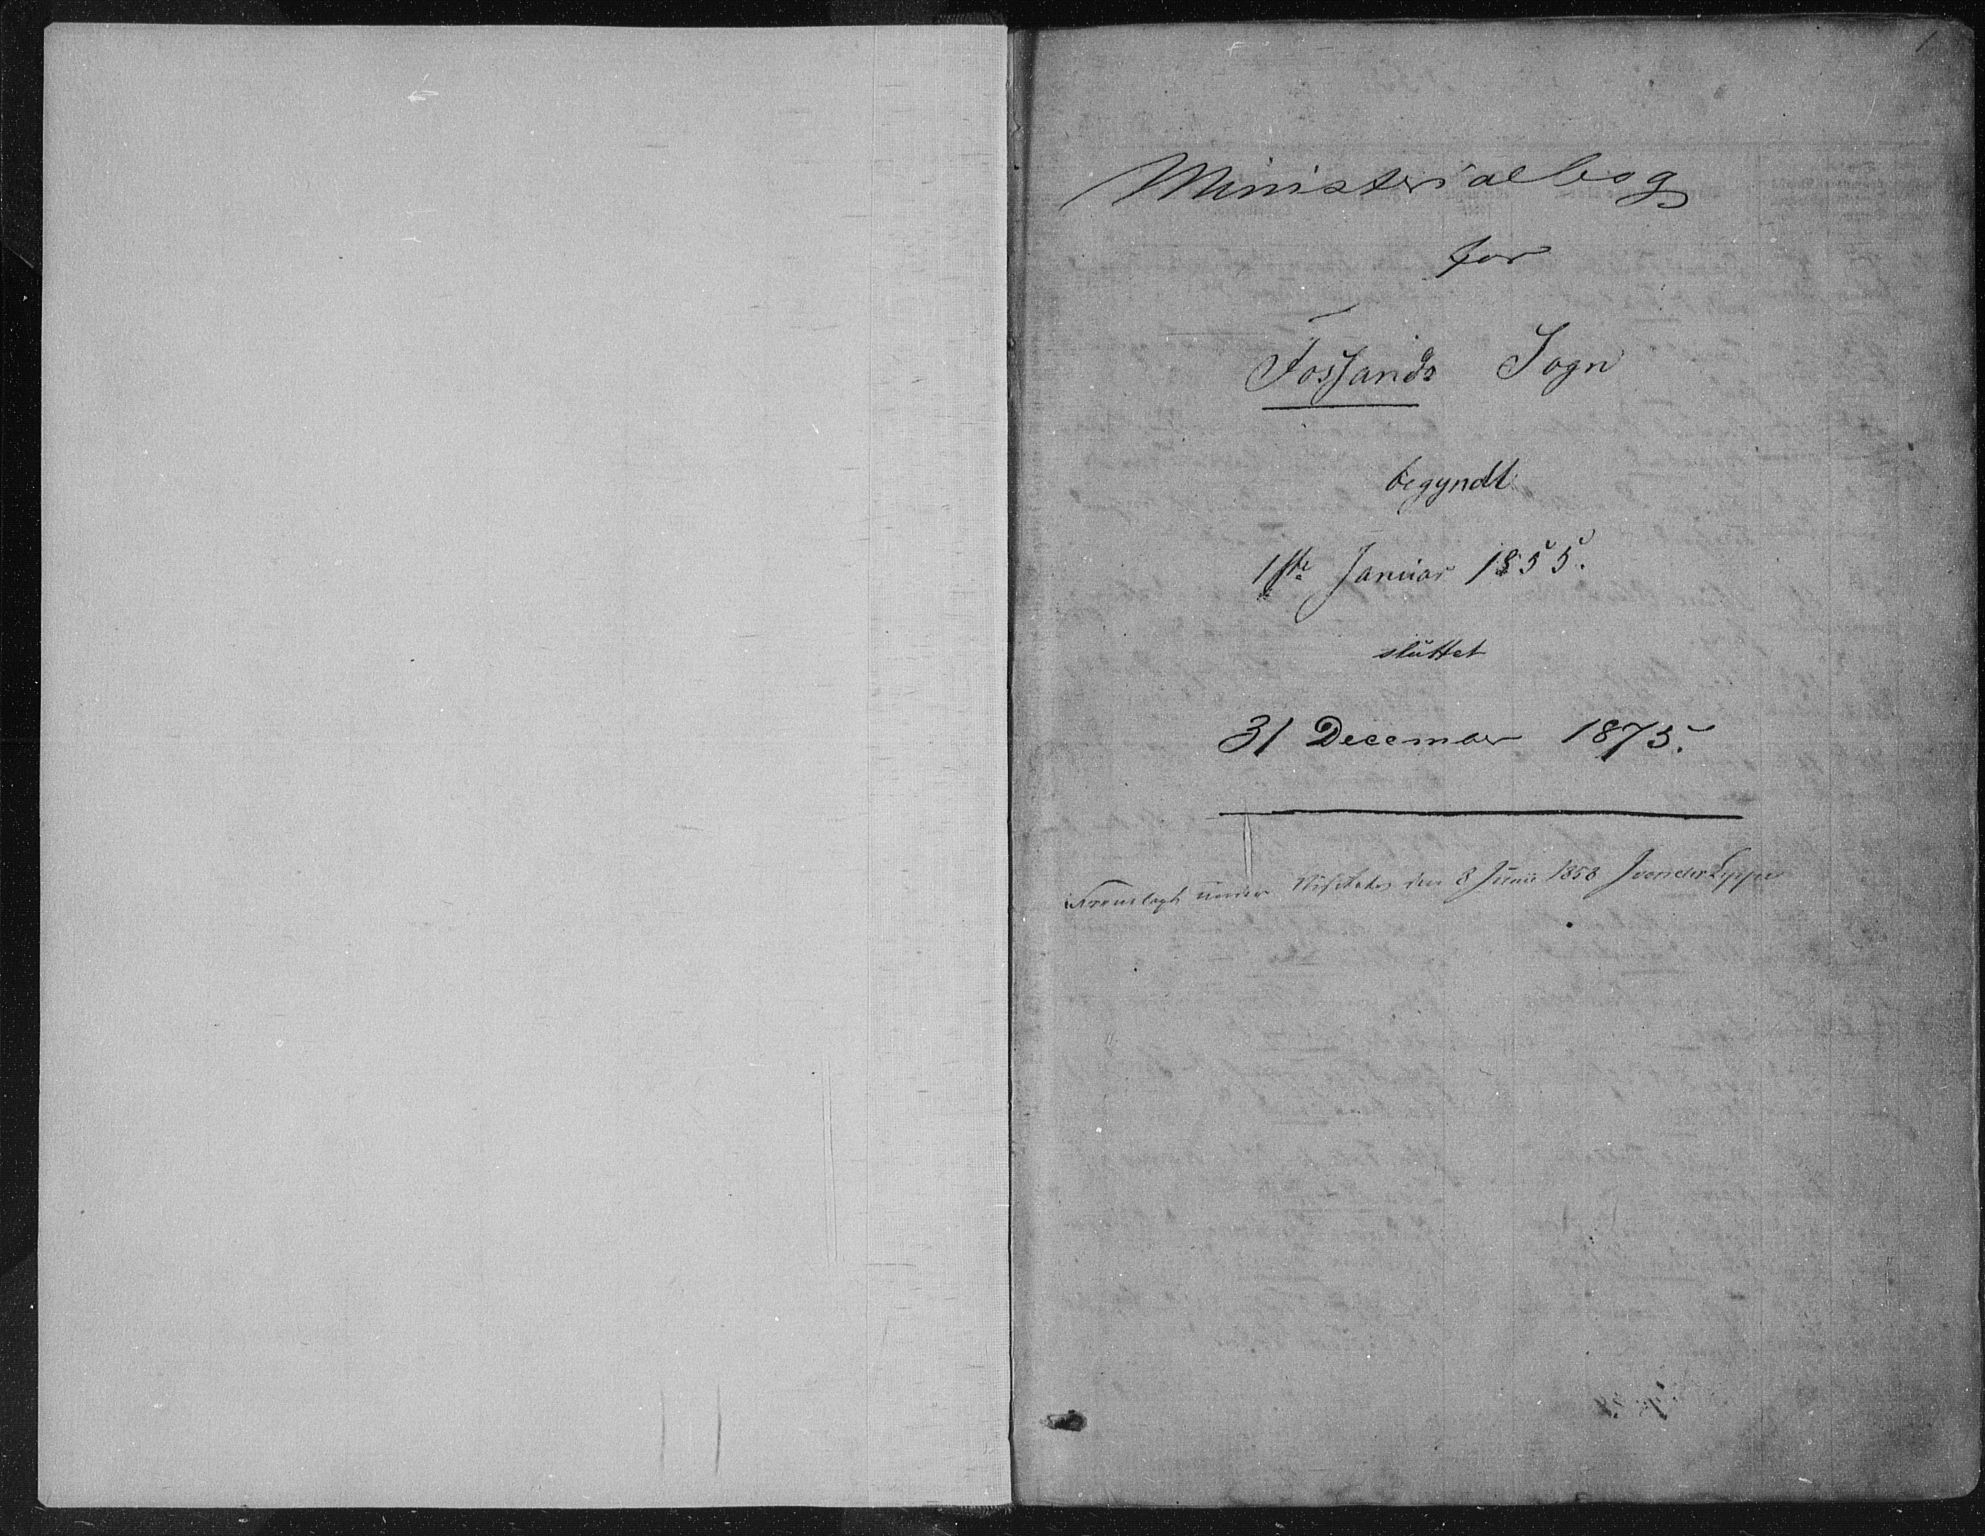 1
Ministerialbog
for
Fossands Sogn
begyndt
1ste Januar 1855.
sluttet
31 December 1875.
Fremlagt under Visitatsen den 8 Juni 1858 J von der Lippe